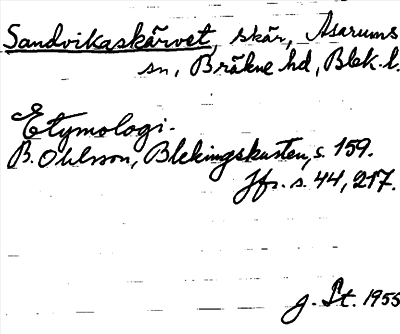 Sandvikaskärvet, skär, Asarums
sn, Bräkne hd, Blek. l.
Etymologi.
B. Ohlsson, Blekingskusten, s. 159.
Jfr. s. 44, 217.
g. St. 1955